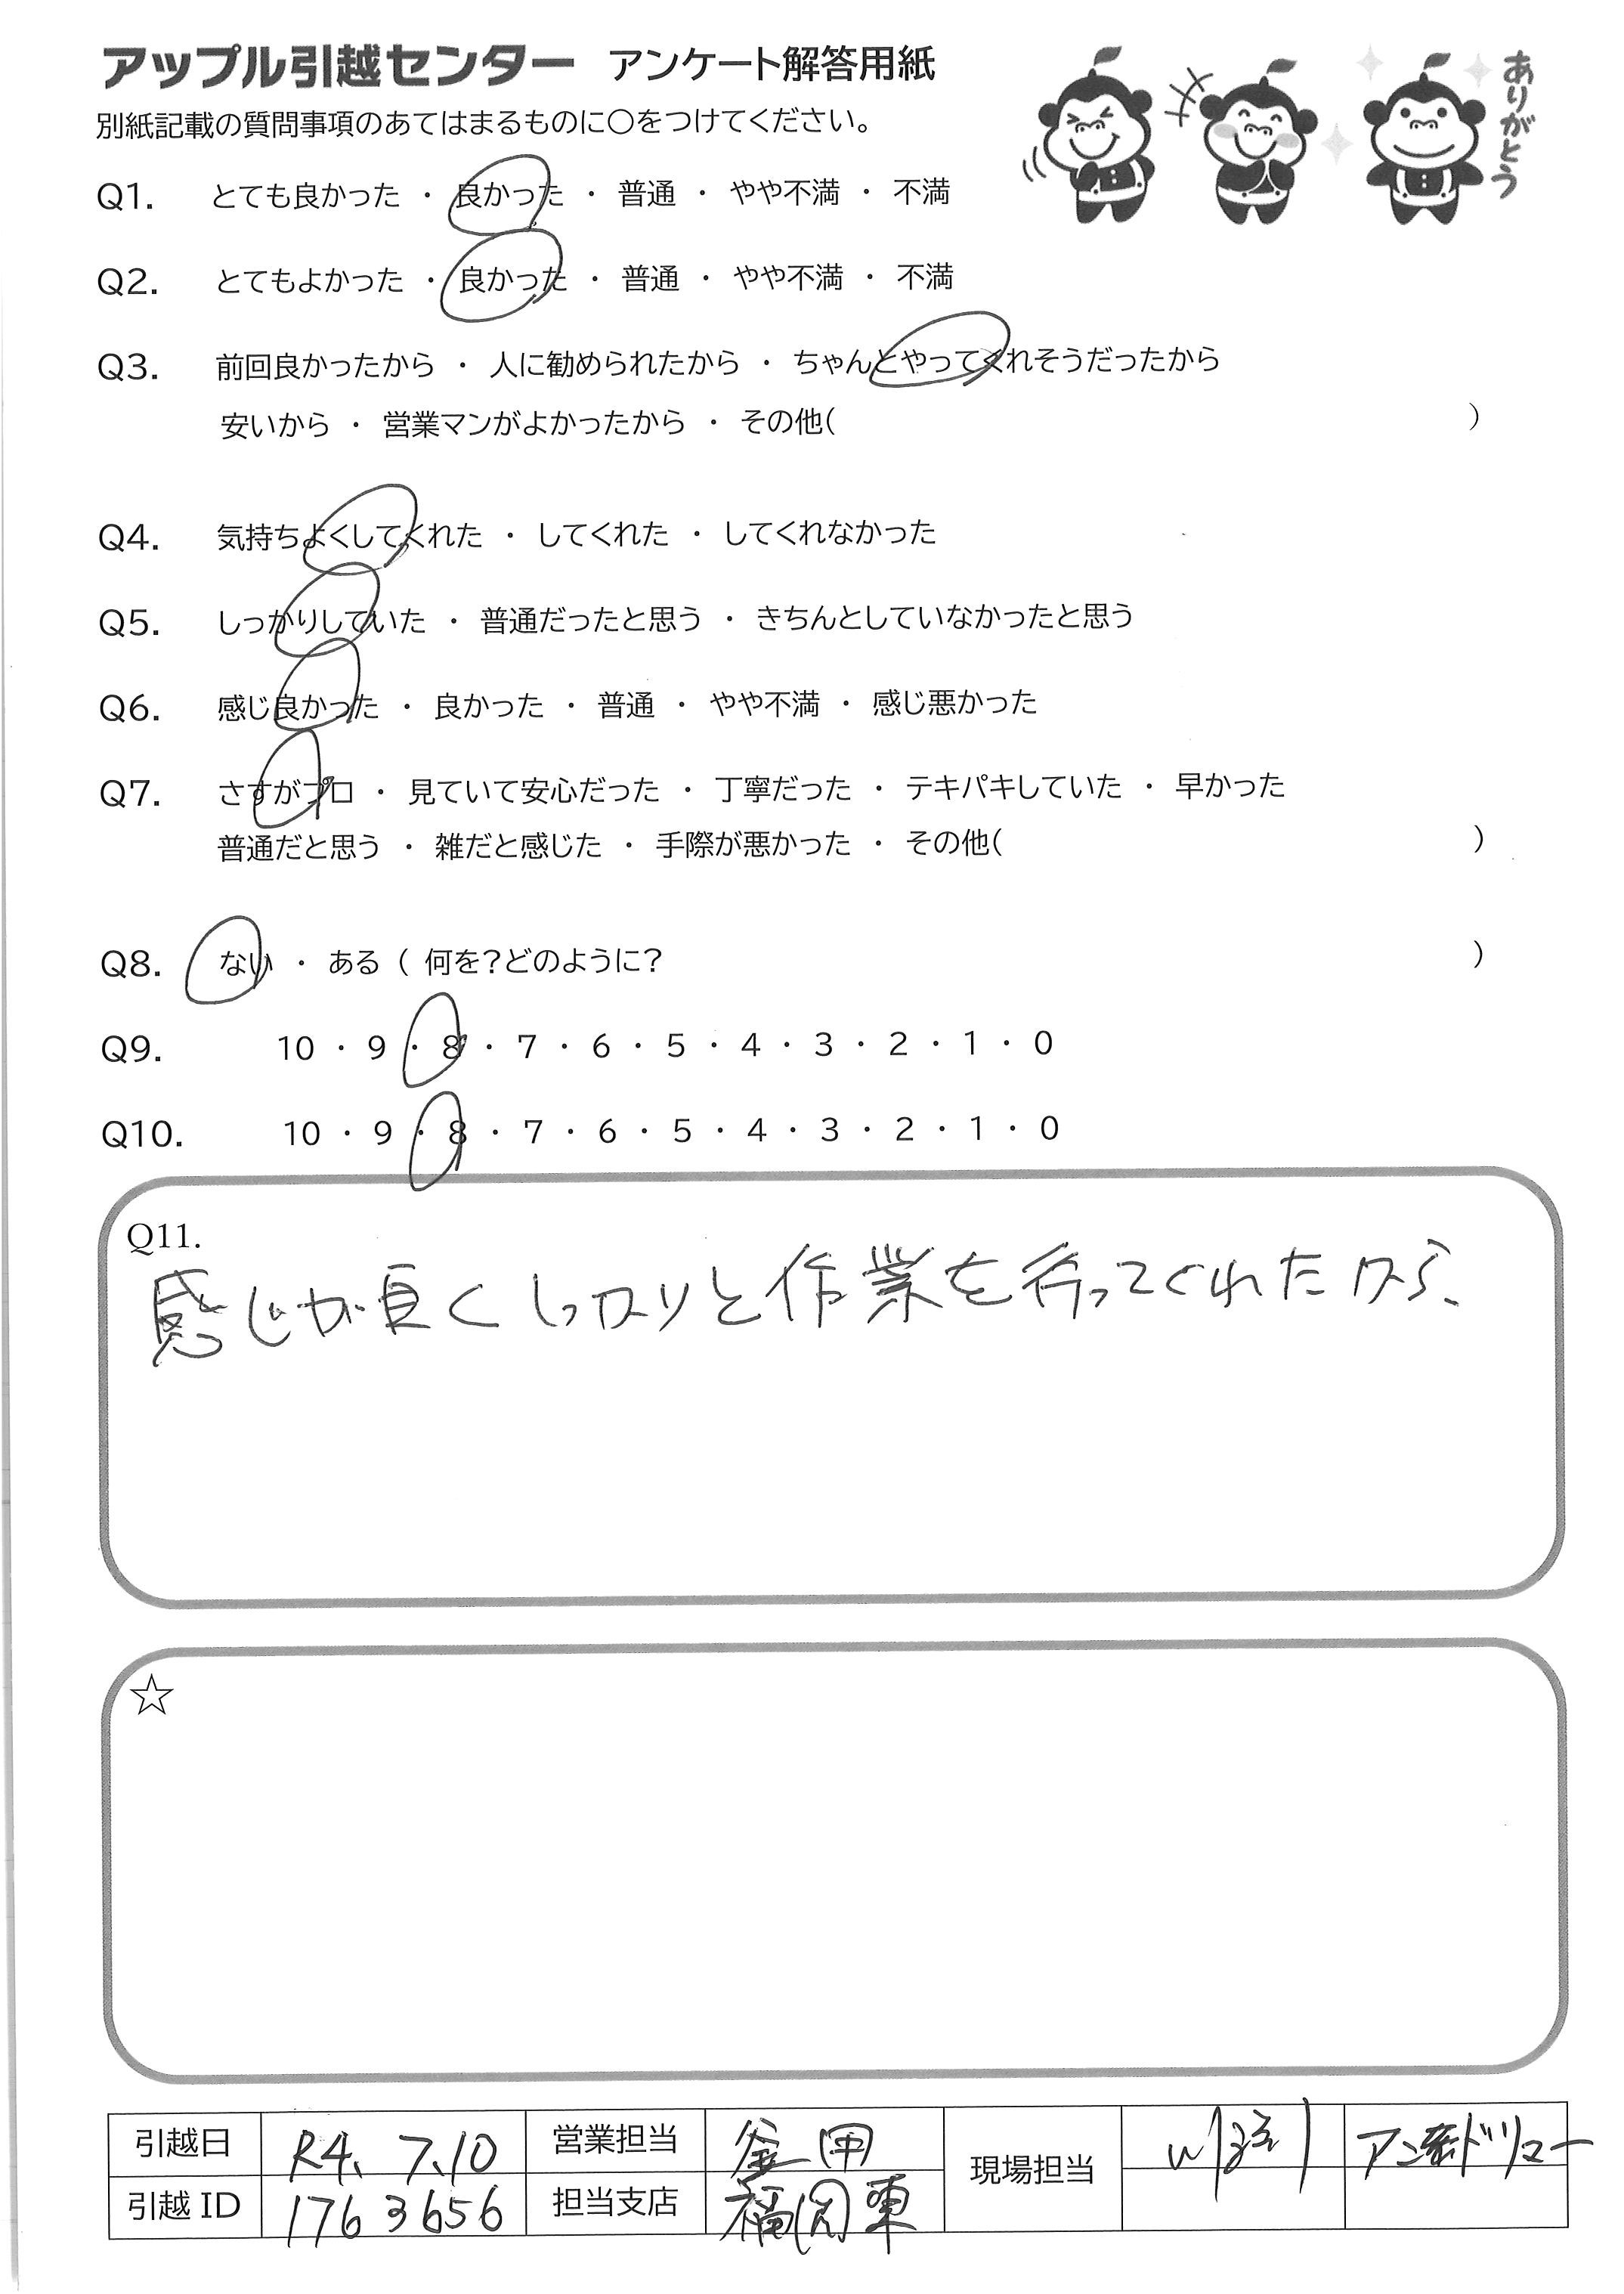 アップル引越センター アンケート解答用紙
ありがとう
別紙記載の質問事項のあてはまるものに○をつけてください。
Q1. とても良かった ・ 良かった ・ 普通 ・ やや不満 ・ 不満
Q2. とてもよかった ・ 良かった ・ 普通 ・ やや不満 ・ 不満
Q3. 前回良かったから ・ 人に勧められたから ・ ちゃんとやってくれそうだったから
安いから ・ 営業マンがよかったから ・ その他( )
Q4. 気持ちよくしてくれた ・ してくれた ・ してくれなかった
Q5. しっかりしていた ・ 普通だったと思う ・ きちんとしていなかったと思う
Q6. 感じ良かった ・ 良かった ・ 普通 ・ やや不満 ・ 感じ悪かった
Q7. さすがプロ ・ 見ていて安心だった ・ 丁寧だった ・ テキパキしていた ・ 早かった
普通だと思う ・ 雑だと感じた ・ 手際が悪かった ・ その他( )
Q8. ない ・ ある ( 何を?どのように? )
Q9. 10 ・ 9 ・ 8 ・ 7 ・ 6 ・ 5 ・ 4 ・ 3 ・ 2 ・ 1 ・ 0
Q10. 10 ・ 9 ・ 8 ・ 7 ・ 6 ・ 5 ・ 4 ・ 3 ・ 2 ・ 1 ・ 0
Q11.
感じが良くしっかりと作業を行ってくれたから、
☆
引越日 R4、7、10 営業担当 現場担当 アンドリュー
引越 ID 1763656 担当支店 福岡東